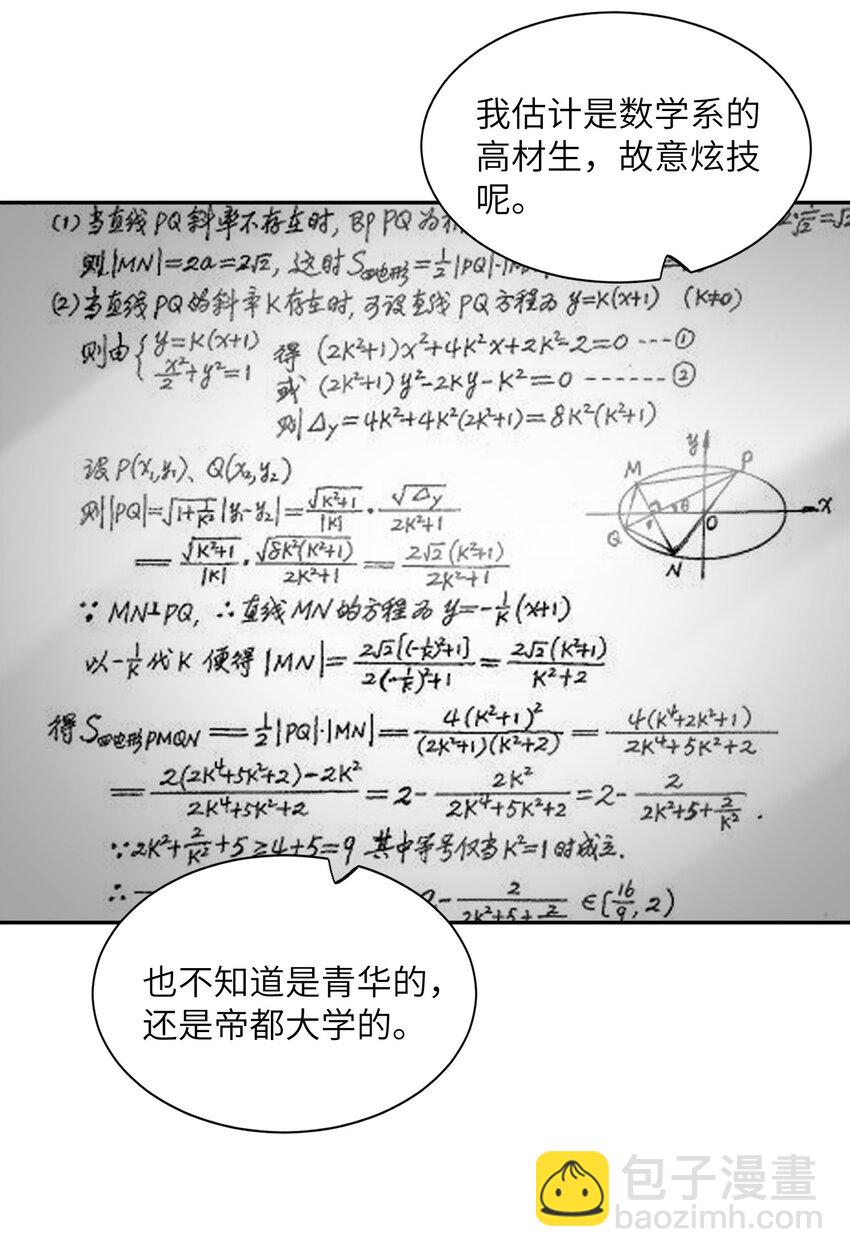 我估计是数学系的
高材生，故意炫技
呢。
(1)当直线PQ斜率不存在时,BP PQ为
则|MN|=2a=2√2, 这时S四边形=1/2|PQ|·|M
(2)当直线PQ的斜率K存在时,可设直线PQ方程为 y=K(x+1) (K≠0)
则由{y=K(x+1) 得 (2K²+1)x²+4K²x+2K²-2=0 ---①
x²/2+y²=1 或 (2K²+1)y²-2Ky-K²=0 ------②
则Δy=4K²+4K²(2K²+1)=8K²(K²+1)
设P(x₁,y₁)、Q(x₂,y₂)
则|PQ|=√(1+1/K²)|y₁-y₂|=√(K²+1)/|K|·√Δy/(2K²+1)
=√(K²+1)/|K|·√(8K²(K²+1))/(2K²+1)=2√2(K²+1)/(2K²+1)
y
M
P
θ
O
x
Q
N
∵MN⊥PQ,∴直线MN的方程为y=-1/K(x+1)
以-1/K代K便得|MN|=2√2[(-1/K)²+1]/(2(-1/K)²+1)=2√2(K²+1)/(K²+2)
得S四边形PMQN=1/2|PQ|·|MN|=4(K²+1)²/((2K²+1)(K²+2))=4(K⁴+2K²+1)/(2K⁴+5K²+2)
=(2(2K⁴+5K²+2)-2K²)/(2K⁴+5K²+2)=2-2K²/(2K⁴+5K²+2)=2-2/(2K²+5+2/K²).
∵2K²+2/K²+5≥4+5=9 其中等号仅当K²=1时成立.
∴ -2/(2K²+5+2/ ∈[16/9,2)
也不知道是青华的，
还是帝都大学的。
包子漫畫
baozimh.com